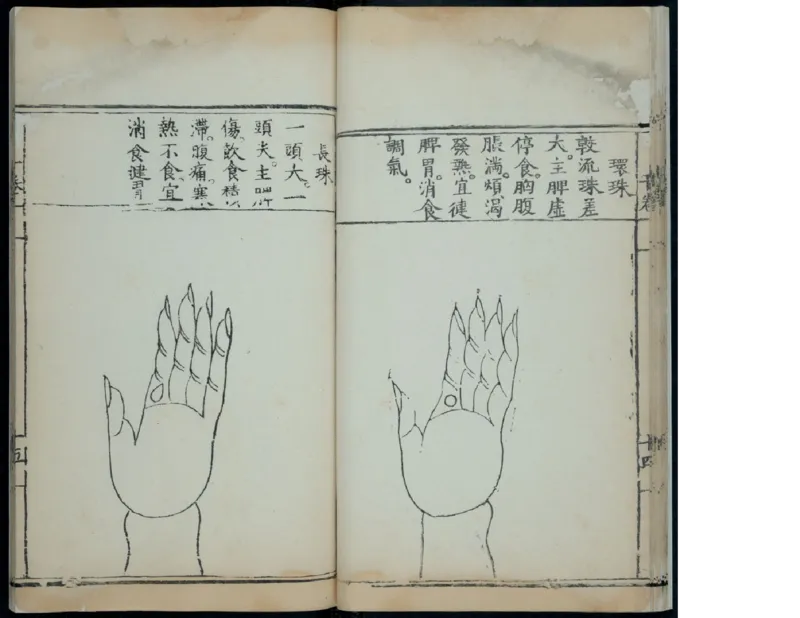 環珠
較流珠差
大。主脾虛
停食。胸腹
脹滿。煩渴
發熱。宜健
脾胃。消食
調氣。
長珠
一頭大。一
頭尖。主脾
傷。飲食積
滯。腹痛。寒
熱不食宜
消食健胃